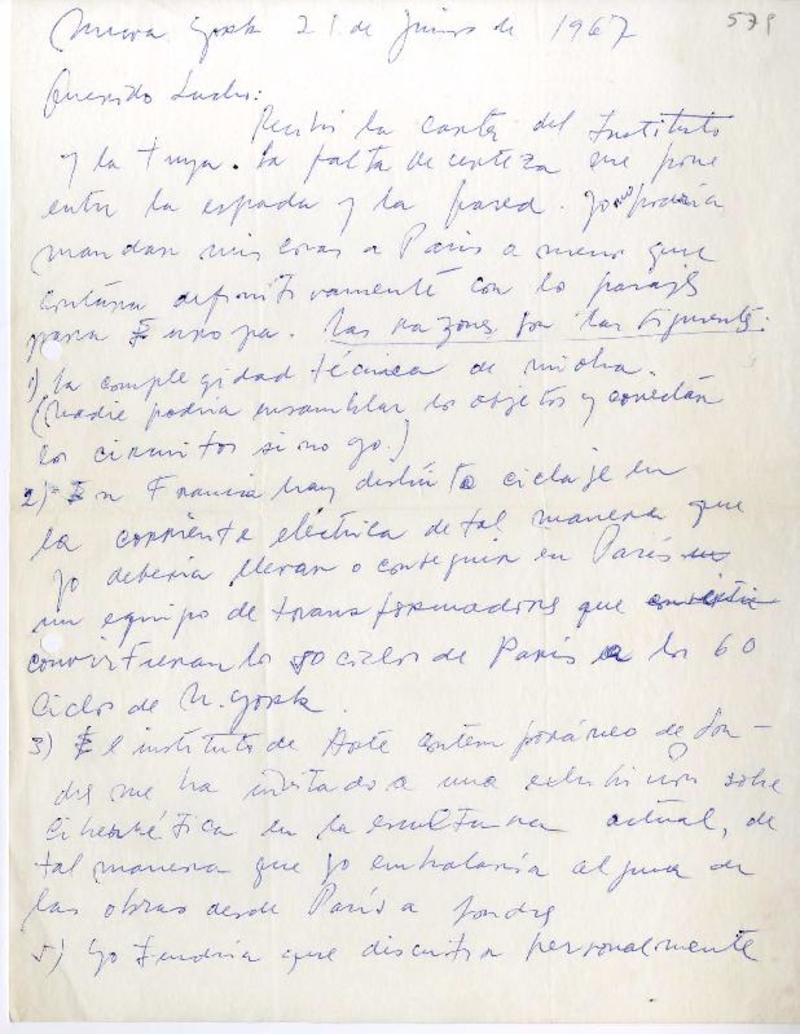 Nueva York 21 de Junio de 1967
579
Querido Lucho:
Recibí la carta del Instituto
y la tuya. La falta de certeza me pone
entre la espada y la pared. Yo no podría
mandar mis cosas a París a menos que
contara definitivamente con los pasajes
para Europa. Las razones son las siguientes:
1) La complegidad técnica de mi obra.
(Nadie podría ensamblar los objetos y conectar
los circuitos si no yo.)
2) En Francia hay distinto ciclaje en
la corriente eléctrica de tal manera que
yo debería llevar o conseguir en París
un equipo de transformadores que
convirtieran los 50 ciclos de París a los 60
ciclos de N. York.
3) El instituto de Arte Contemporáneo de Lon-
dres me ha invitado a una exhibición sobre
cibernética en la escultura actual, de
tal manera que yo embalaría alguna de
las obras desde París a Londres
5) Yo tendría que discutir personalmente